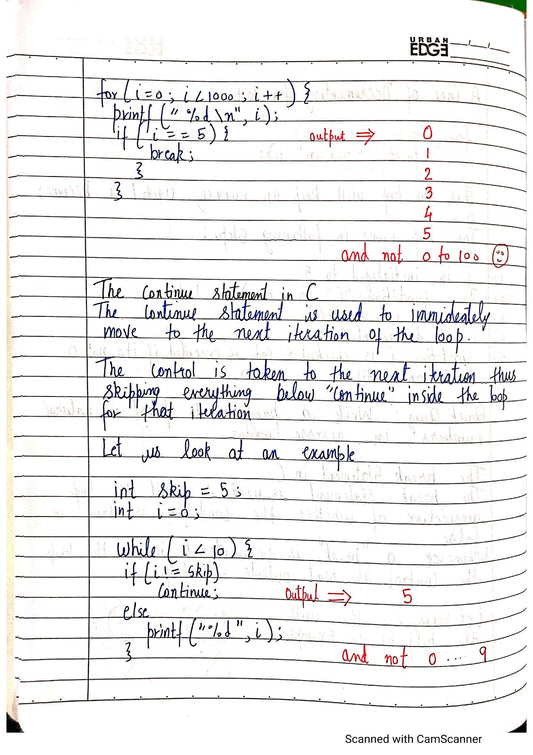 URBAN
EDGE
for (i=0; i<1000; i++) {
printf ("%d\n", i);
if (i == 5) {
break;
}
}
output ⇒ 0
1
2
3
4
5
and not 0 to 100
The Continue statement in C
The Continue statement is used to immideately
move to the next iteration of the loop.
The Control is taken to the next iteration thus
skipping everything below "Continue" inside the loop
for that iteration
Let us look at an example
int skip = 5;
int i=0;
while (i < 10) {
if (i != skip)
Continue;
else
printf ("%d", i);
}
Output ⇒ 5
and not 0 ... 9
Scanned with CamScanner